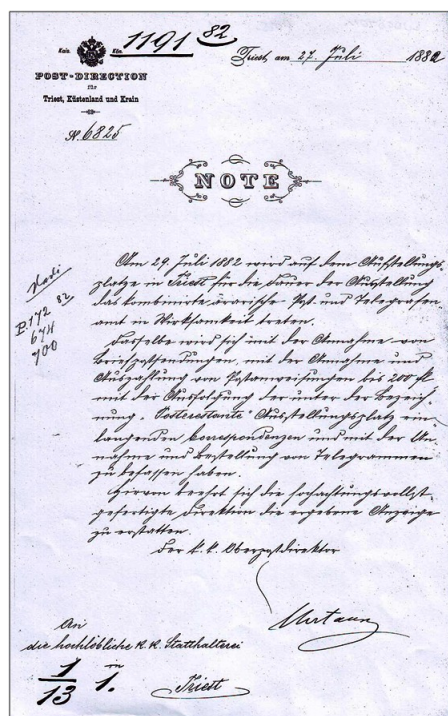 1191 82
Kais. Kön.
Triest, am 27. Juli 1882
POST-DIRECTION
für
Triest, Küstenland und Krain
N. 6825
NOTE
Am 29. Juli 1882 wird auf dem Ausstellungs-
platze in Triest für die Dauer der Ausstellung
das kombinirte ärarische Post und Telegrafen
amt in Wirksamkeit treten.
Dasselbe wird sich mit der Annahme von
Briefpostsendungen, mit der Annahme und
Auszahlung von Postanweisungen bis 200 fl
mit der Ausfolgung der unter der Bezeich-
nung „Posterestante" Ausstellungsplatz ein-
langenden Correspondenzen und mit der An-
nahme und Bestellung von Telegrammen
zu befassen haben.
Hievon beehrt sich die hochachtungsvollst
gefertigte Direktion die ergebene Anzeige
zu erstatten.
Der k. k. Oberpostdirektor
P. 172 82
674
700
An
die hochlöbliche K. K. Statthalterei
in
1/13 1. Triest